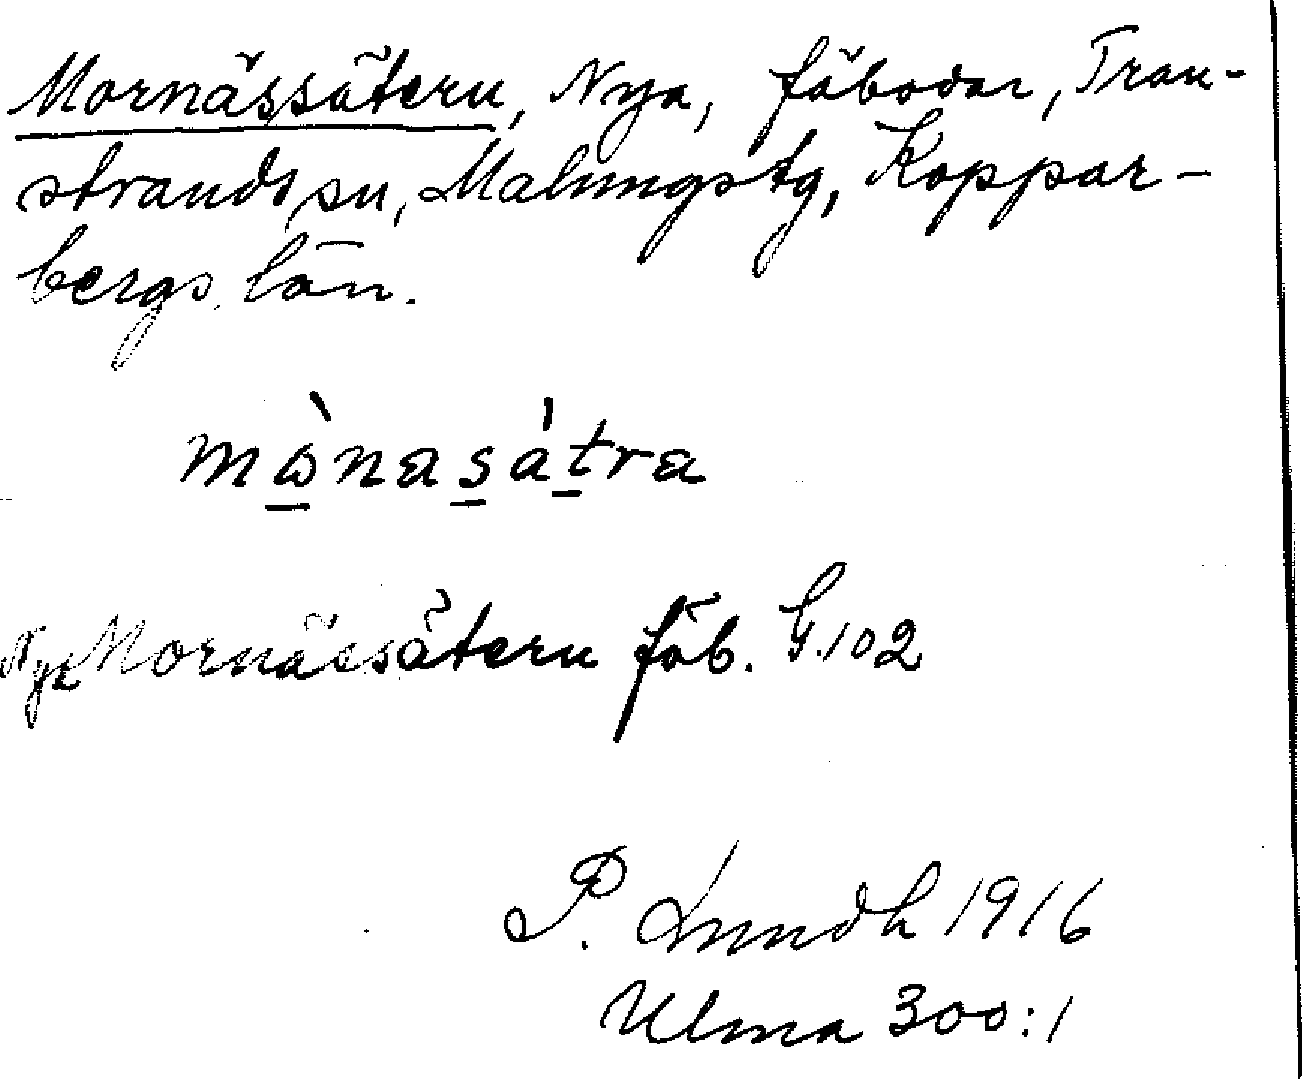 Mornässätern, Nya, fäbodar, Tran-
strands sn, Malungs tg, Koppar-
bergs län.
mònasátra
Nya Mornässätern fäb. G.102
P. Lundh 1916
Ulma 300:1